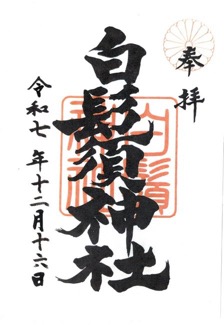 奉拝
白鬚神社
令和七年十二月十六日